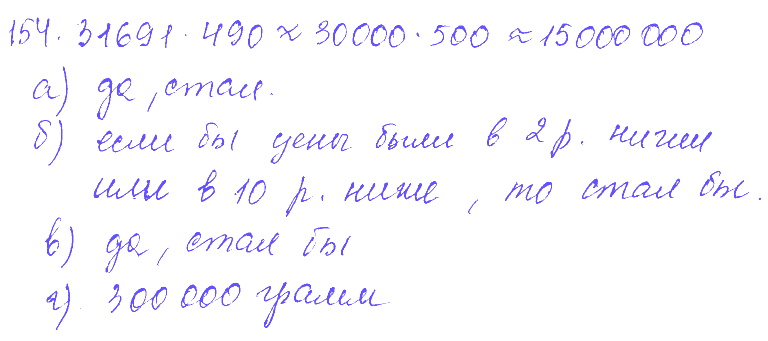 154. 31691 · 490 ≈ 30000 · 500 ≈ 15000 000
а) да, стал.
б) если бы цены были в 2 р. ниже
или в 10 р. ниже, то стал бы.
в) да, стал бы
г) 300 000 грамм